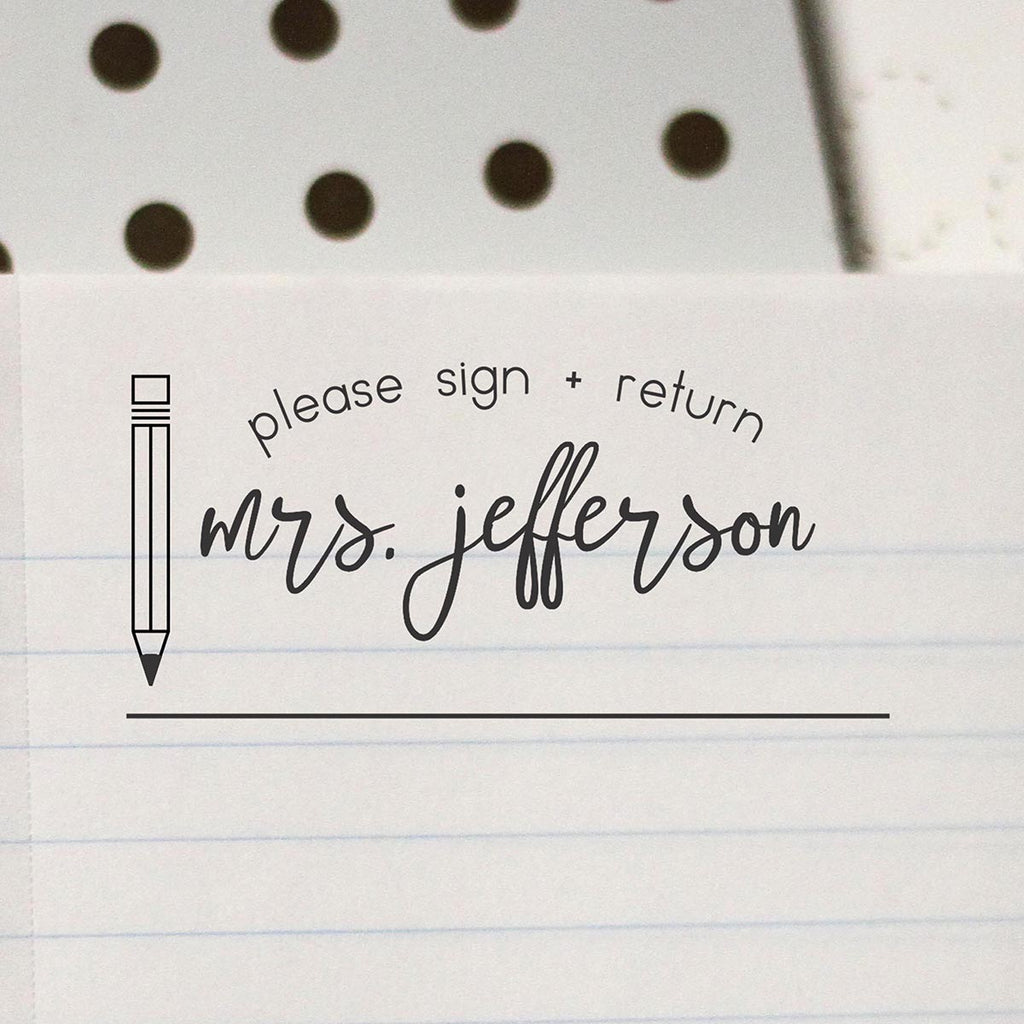 please sign + return
mrs. jefferson